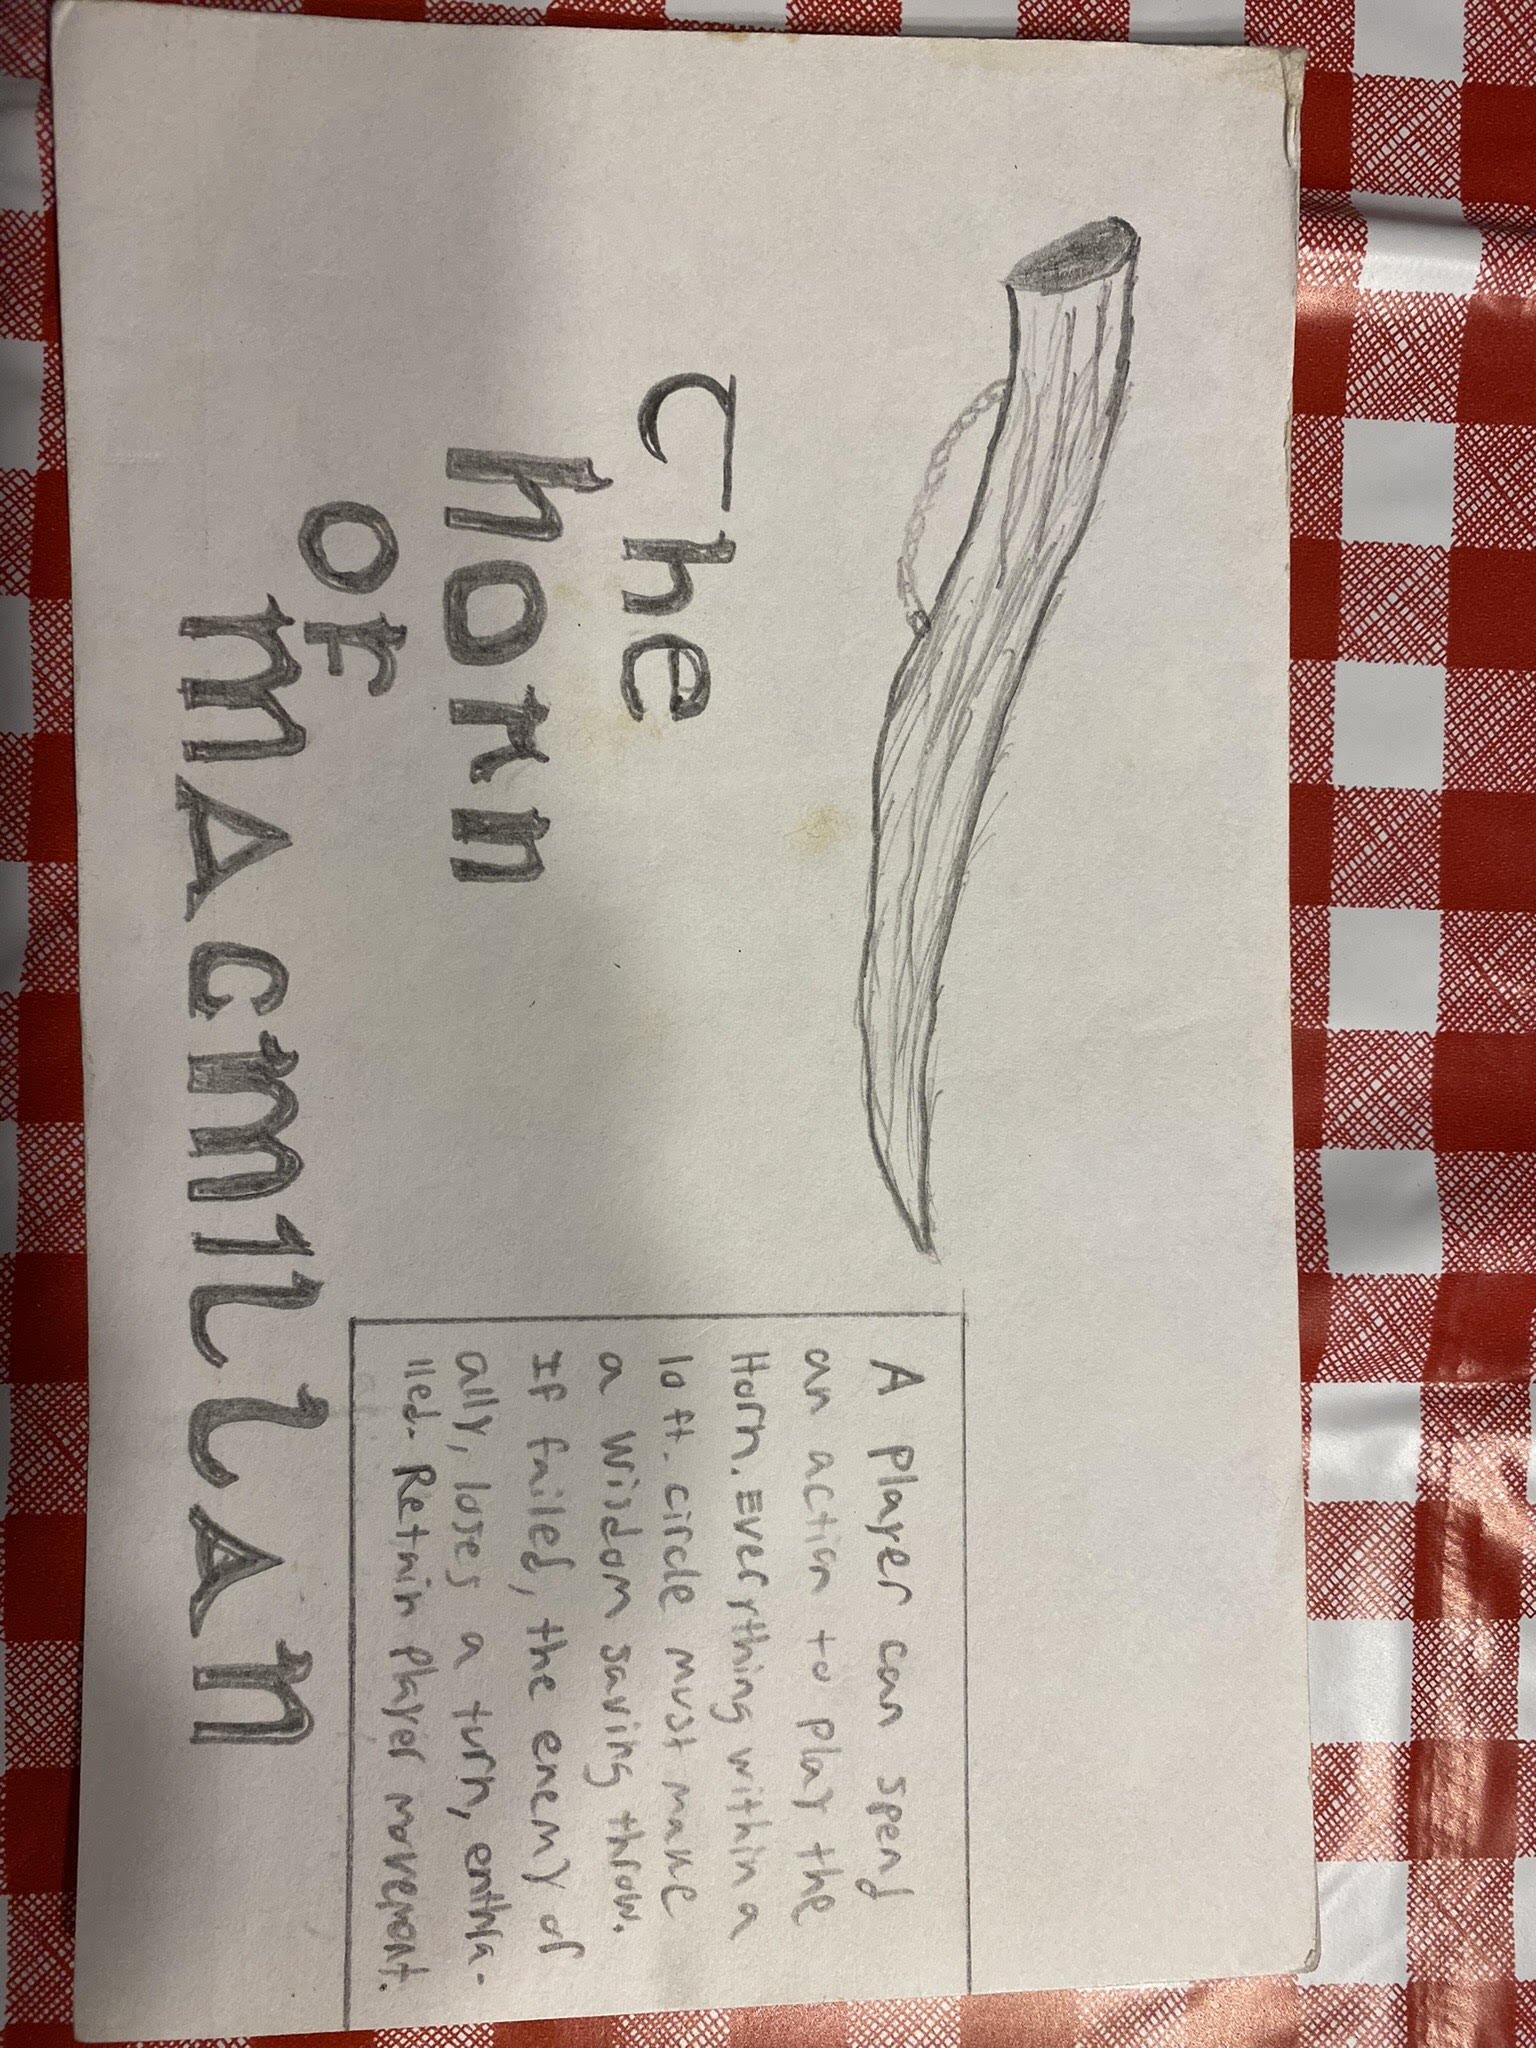 The
Horn
of
Macmillan
A player can spend
an action to play the
Horn. Everything within a
10 ft. circle must make
a wisdom saving throw.
If failed, the enemy or
ally, loses a turn, enthra-
lled. Retain player movement.